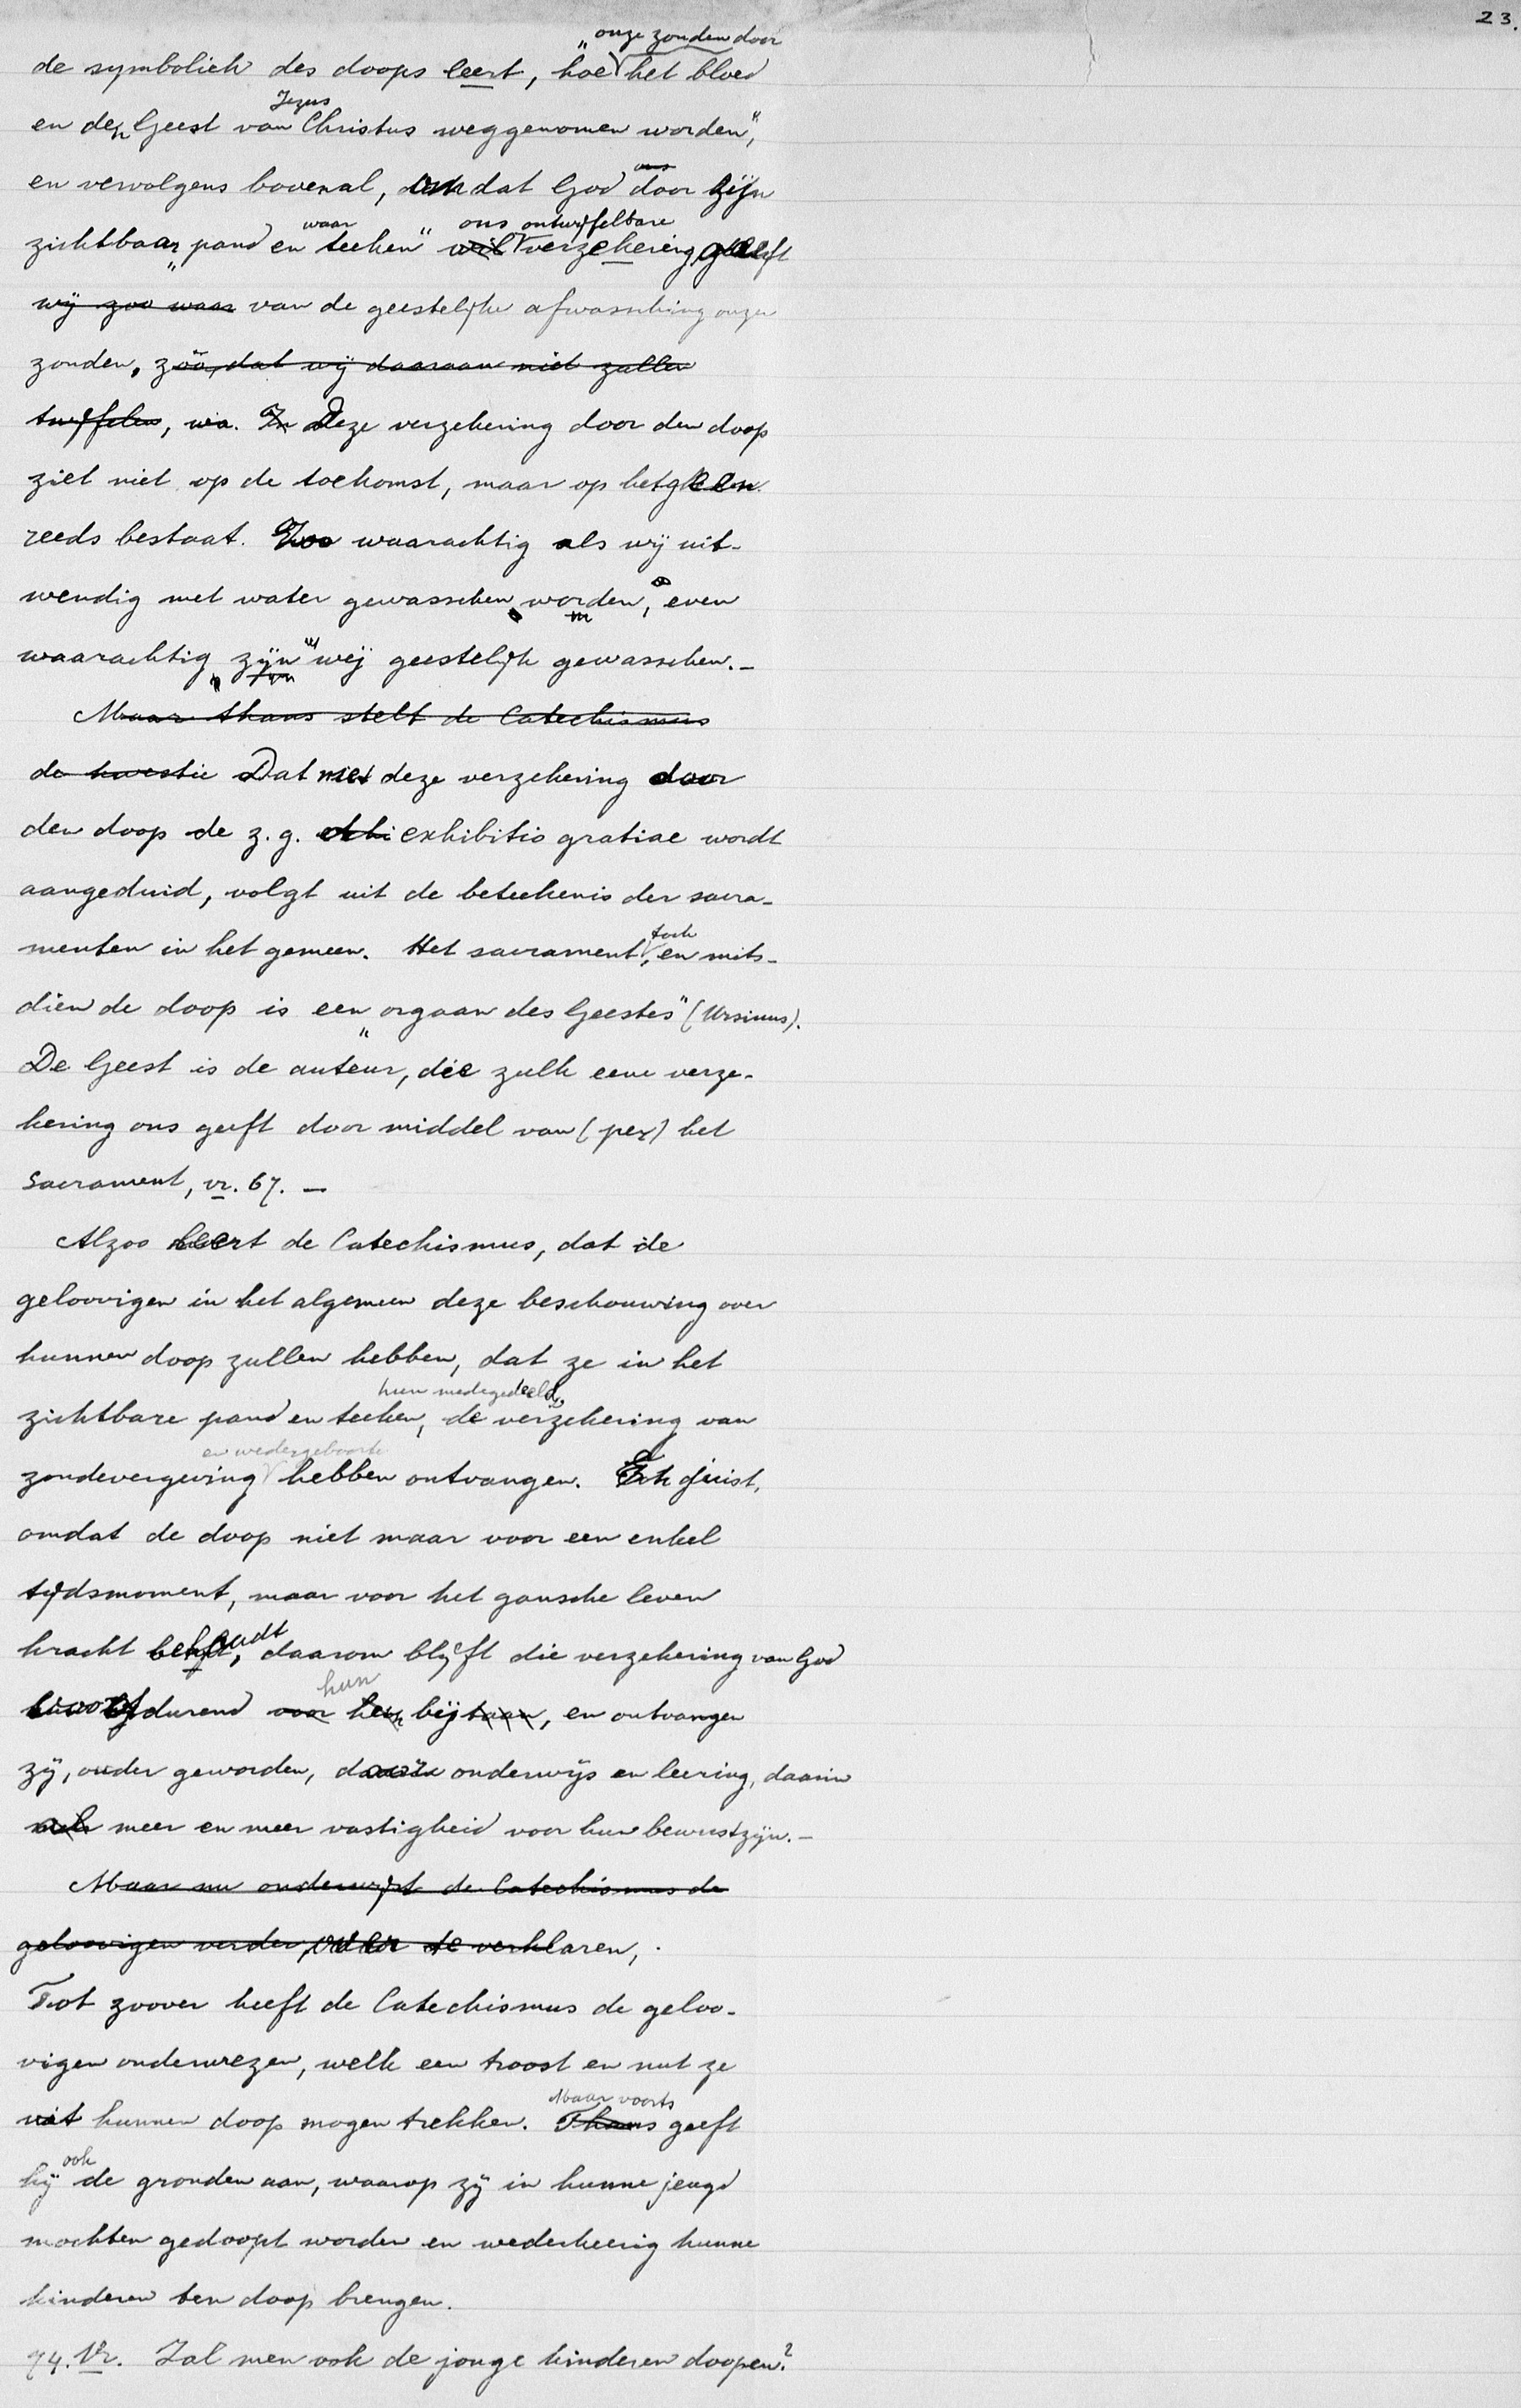 23.
"onze zonden door
de symboliek des doops leert, hoe het bloed
Jezus
en den Geest van Christus weggenomen worden",
en vervolgens bovenal, dat God door zijn
waar ons ontwijfelbare
zichtbaar "pand en teeken" wil verzekering geeft
wij zoo waar van de geestelijke afwassching onzer
zonden, zóó, dat wij daaraan niet zullen
twijfelen, wa. In Deze verzekering door den doop
ziet niet op de toekomst, maar op hetgeen
reeds bestaat. Zoo waarachtig als wij uit-
wendig met water gewasschen worden, even
waarachtig zijn wij geestelijk gewasschen. –
Maar thans stelt de Catechismus
de kwestie Dat met deze verzekering door
den doop de z.g. exhibitio gratiae wordt
aangeduid, volgt uit de beteekenis der sacra-
menten in het gemeen. Het sacrament toch, en mits-
dien de doop is een "orgaan des Geestes" (Ursinus).
De Geest is de auteur, die zulk eene verze-
kering ons geeft door middel van (per) het
Sacrament, vr. 67. –
Alzoo leert de Catechismus, dat de
geloovigen in het algemeen deze beschouwing over
hunnen doop zullen hebben, dat ze in het
hun medegedeelde
zichtbare pand en teeken, de verzekering van
en wedergeboorte
zondevergeving hebben ontvangen. En juist,
omdat de doop niet maar voor een enkel
tijdsmoment, maar voor het gansche leven
kracht behoudt, daarom blijft die verzekering van God
hun
voortdurend voor hen bij, en ontvangen
zij, ouder geworden, door onderwijs en leering, daarin
meer en meer vastigheid voor hun bewustzijn. –
Maar nu onderwijst de Catechismus de
geloovigen verder, over te verklaren,
Tot zoover heeft de Catechismus de geloo-
vigen onderwezen, welk een troost en nut ze
Maar voorts
uit hunnen doop mogen trekken. Thans geeft
ook
hij de gronden aan, waarop zij in hunne jeugd
mochten gedoopt worden en wederkeerig hunne
kinderen ten doop brengen.
74. Vr. Zal men ook de jonge kinderen doopen?